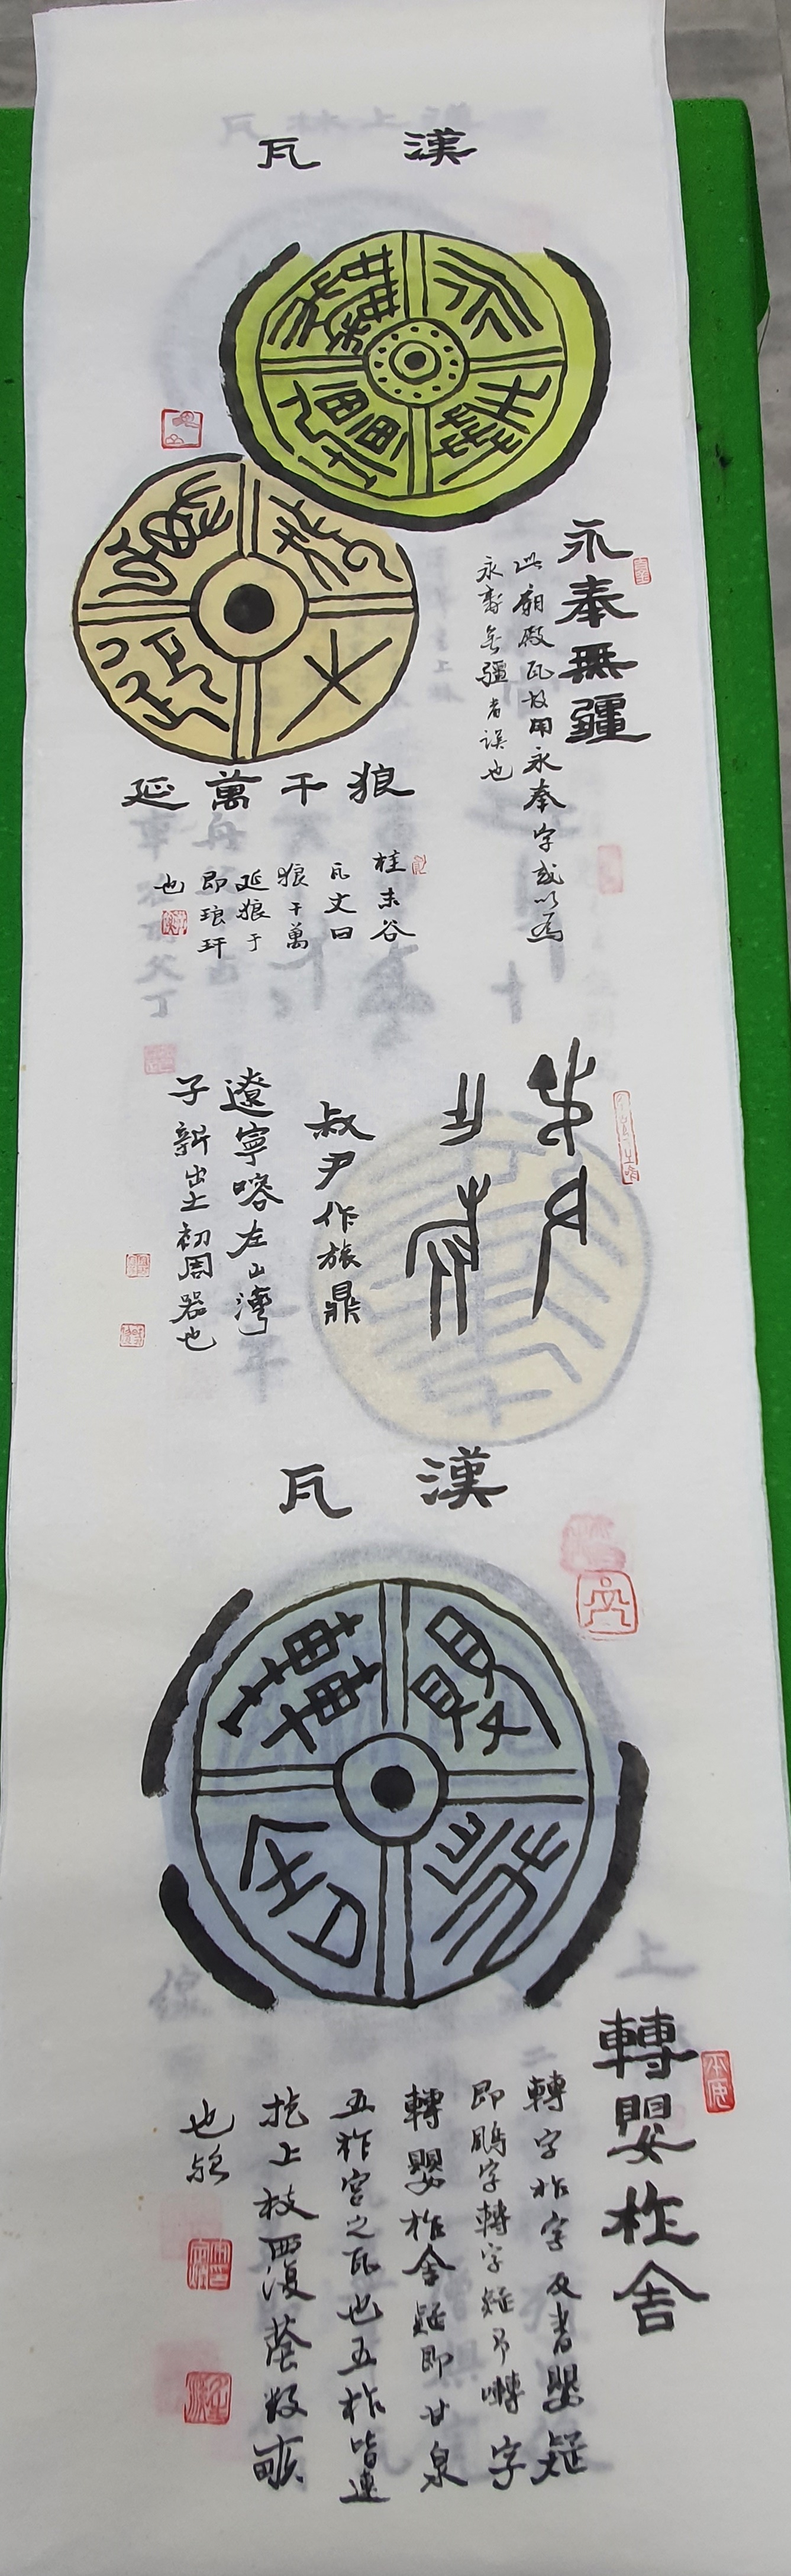 漢瓦
永奉無疆
此廟殿瓦故用永奉字或以為
永壽無疆者誤也
狼千萬延
桂未谷
瓦文曰
狼干萬
延狼于
即琅玕
也
叔尹作旅鼎
遼寧喀左山灣
子新出土初周器也
漢瓦
轉嬰柞舍
轉字柞字反書嬰疑
即鵬字轉字疑即囀字
轉嬰柞舍疑即甘泉
五柞宮之瓦也五柞皆連
抱上枝四復蔭數畝
也